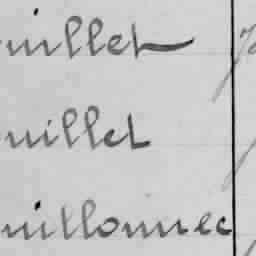 uillet
uillet
uillonnec